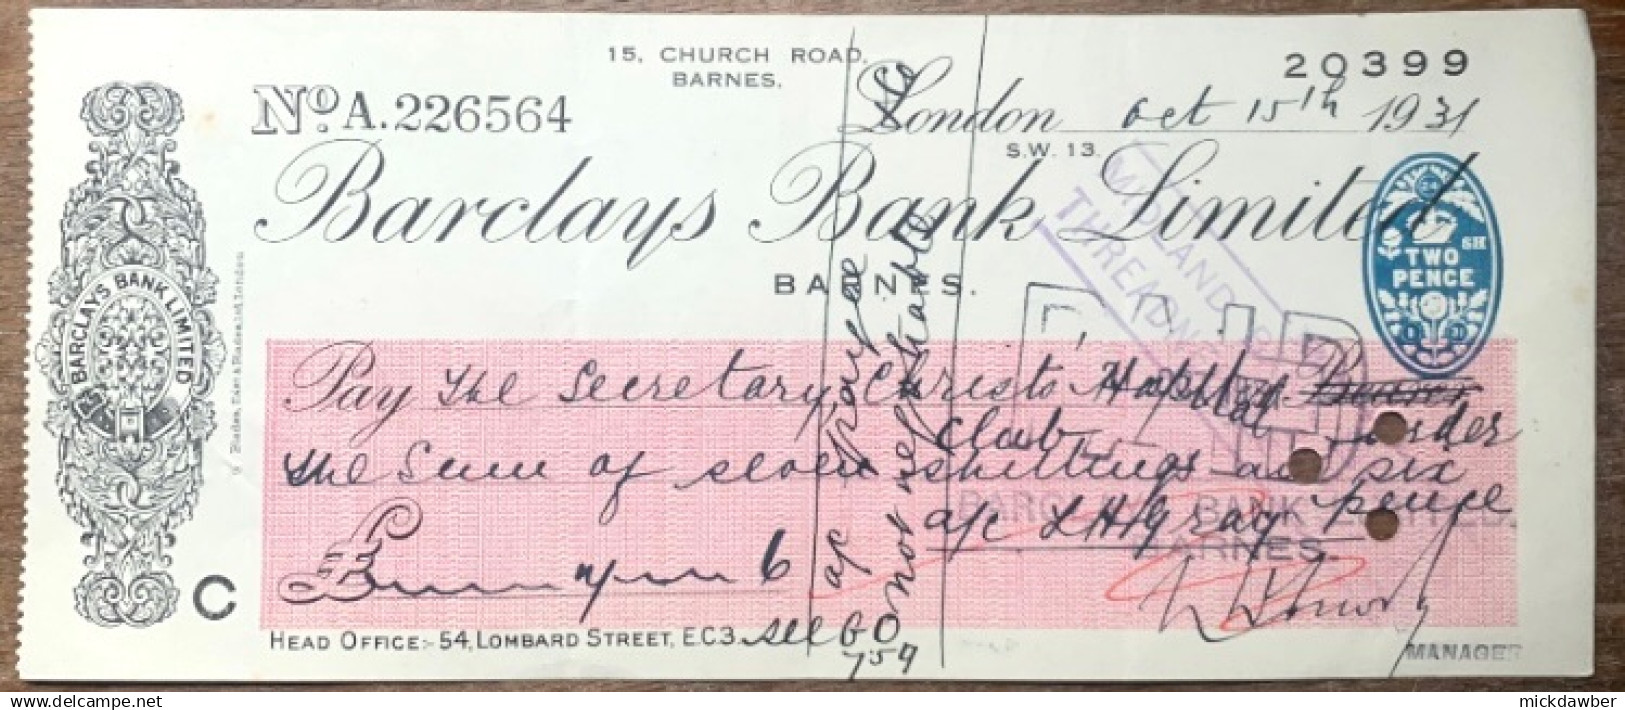 15, CHURCH ROAD,
BARNES.
20399
No. A.226564
London Oct 15th 1931
S.W. 13.
Barclays Bank Limited
BARNES.
BARCLAYS BANK LIMITED
TWO
PENCE
MIDLAND
THREADN
PAID
Pay The Secretary Christs Hospital Bearer
Club or order
the Sum of seven shillings and six
pence
a/c L H Gray
BARCLAYS BANK LIMITED.
BARNES.
£ 7 6
& Co
a/c payee
not negotiable
C
HEAD OFFICE:- 54, LOMBARD STREET, E.C.3.
see GO
759
MANAGER
delcampe.net
mickdawber